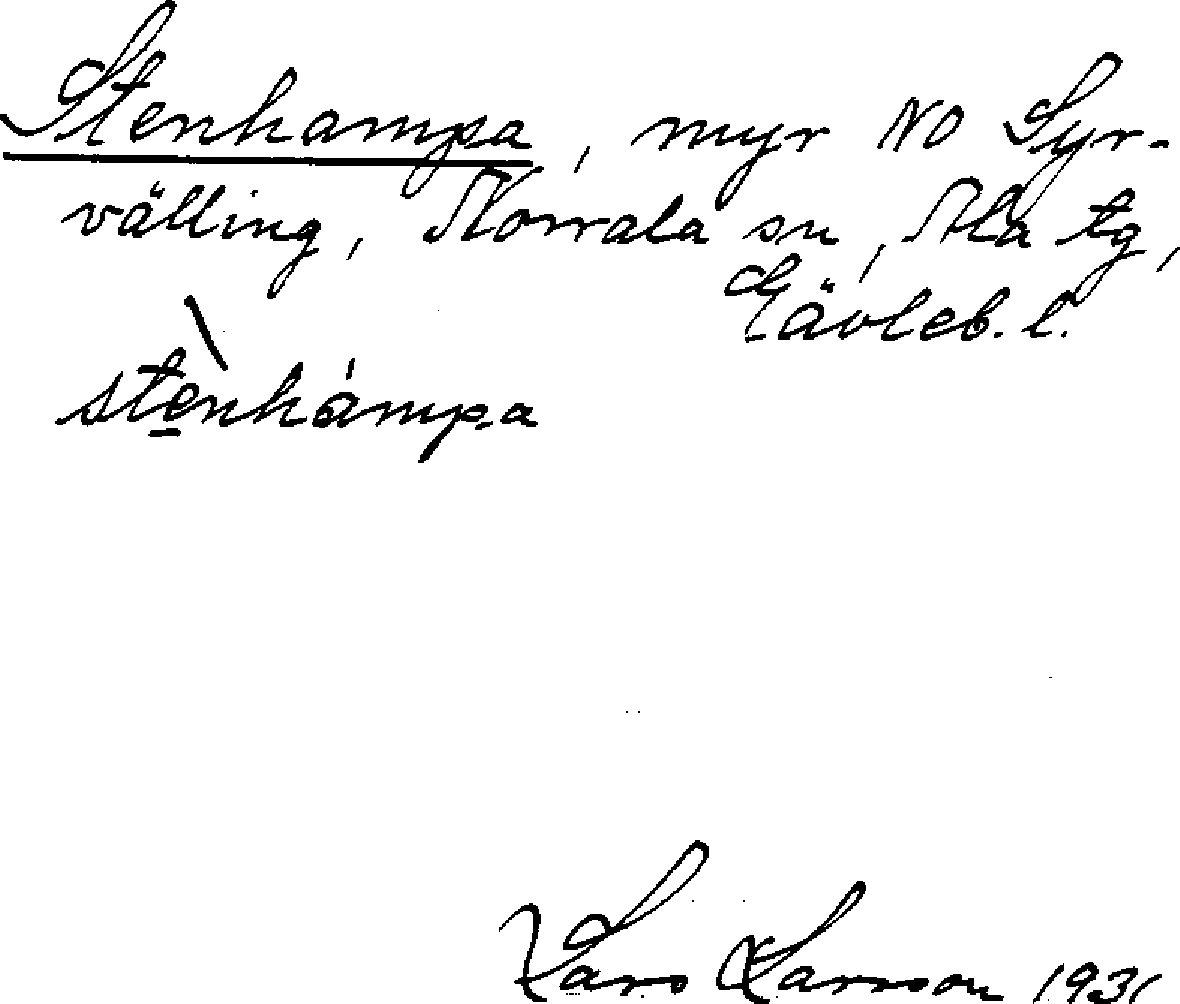 Stenhampa, myr NO Syr-
välling, Norrala sn, Ala tg,
Gävleb. l.
stènhámpa
Lars Larsson 1931